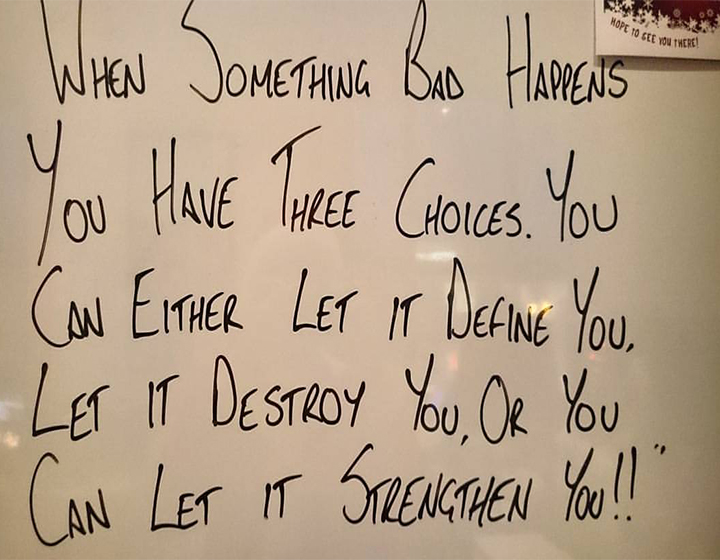 HOPE TO SEE YOU THERE!
WHEN SOMETHING BAD HAPPENS
YOU HAVE THREE CHOICES. YOU
CAN EITHER LET IT DEFINE YOU,
LET IT DESTROY YOU, OR YOU
CAN LET IT STRENGTHEN YOU!!"